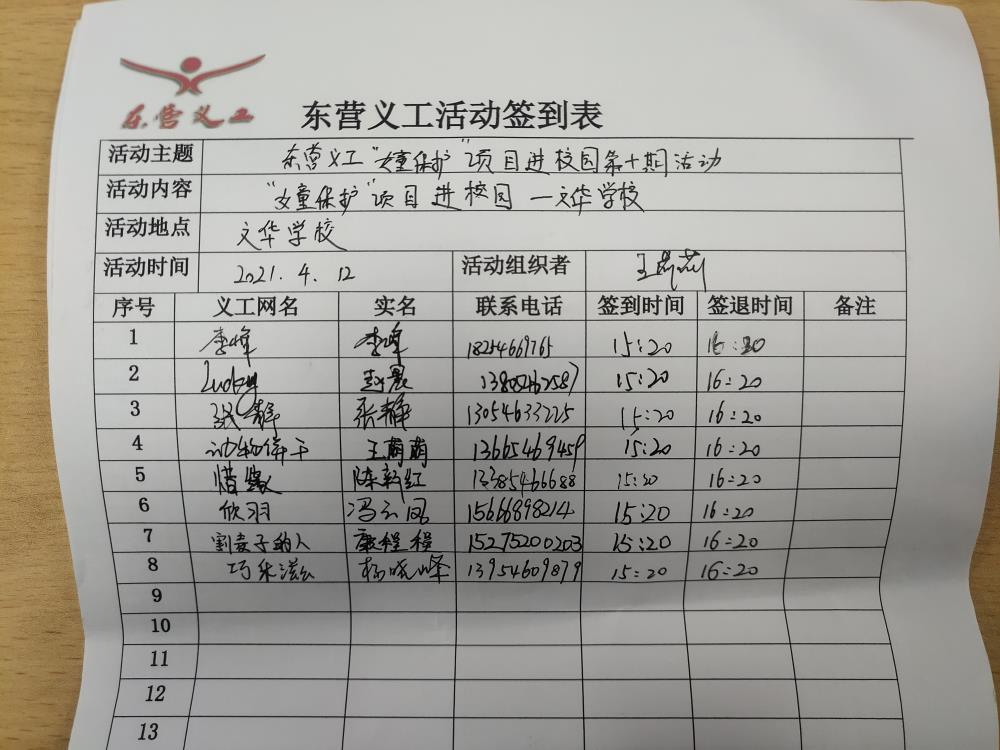 东营义工
东营义工活动签到表
活动主题 东营义工"女童保护"项目进校园第十期活动
活动内容 "女童保护"项目进校园—文华学校
活动地点 文华学校
活动时间 2021.4.12 活动组织者
序号 义工网名 实名 联系电话 签到时间 签退时间 备注
1 李峰 李峰 18254669765 15:20
2 13805462587 15:20 16:20
3 张静 张静 13054633225 15:20 16:20
4 动物饼干 王萌萌 13665469459 15:20 16:20
5 惜缘 陈新红 13385466688 15:20 16:20
6 欣羽 冯云凤 15666898214 15:20 16:20
7 割麦子的人 15275200203 15:20 16:20
8 巧朱滋 杨晓峰 13954609879 15:20 16:20
9
10
11
12
13